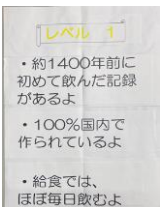 レベル 1
・約1400年前に
初めて飲んだ記録
があるよ
・100%国内で
作られているよ
・給食では、
ほぼ毎日飲むよ